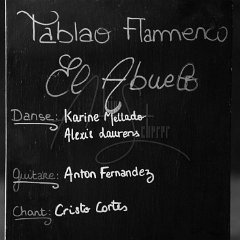 Tablao Flamenco
El Abuelo
Danse: Karine Mellado
Alexis Laurens
Guitare: Anton Fernandez
Chant: Cristo Cortes